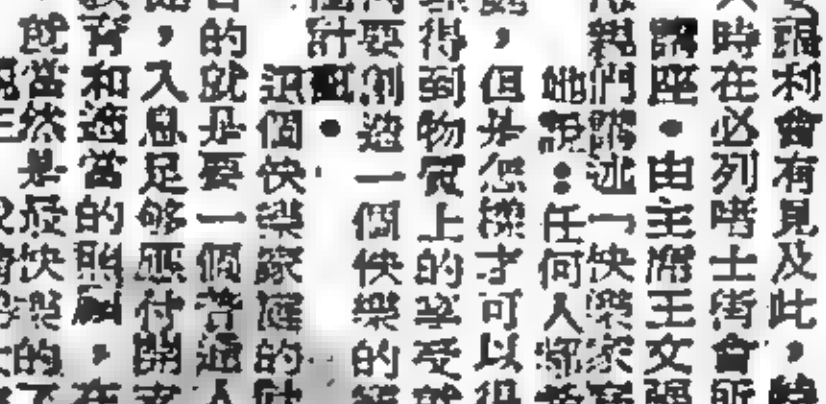 利會有見及此，
時在必列啫士街會所
講座。由主席王文
親們講述「快樂家庭
她說：任何人都
，但是怎樣才可以得
得到物質上的享受
要創造一個快樂的
計劃。
這個快樂家庭的
的就是要一個普通人
，入息足够應付開支
育和適當的照顧，在
就當然是最快樂的了